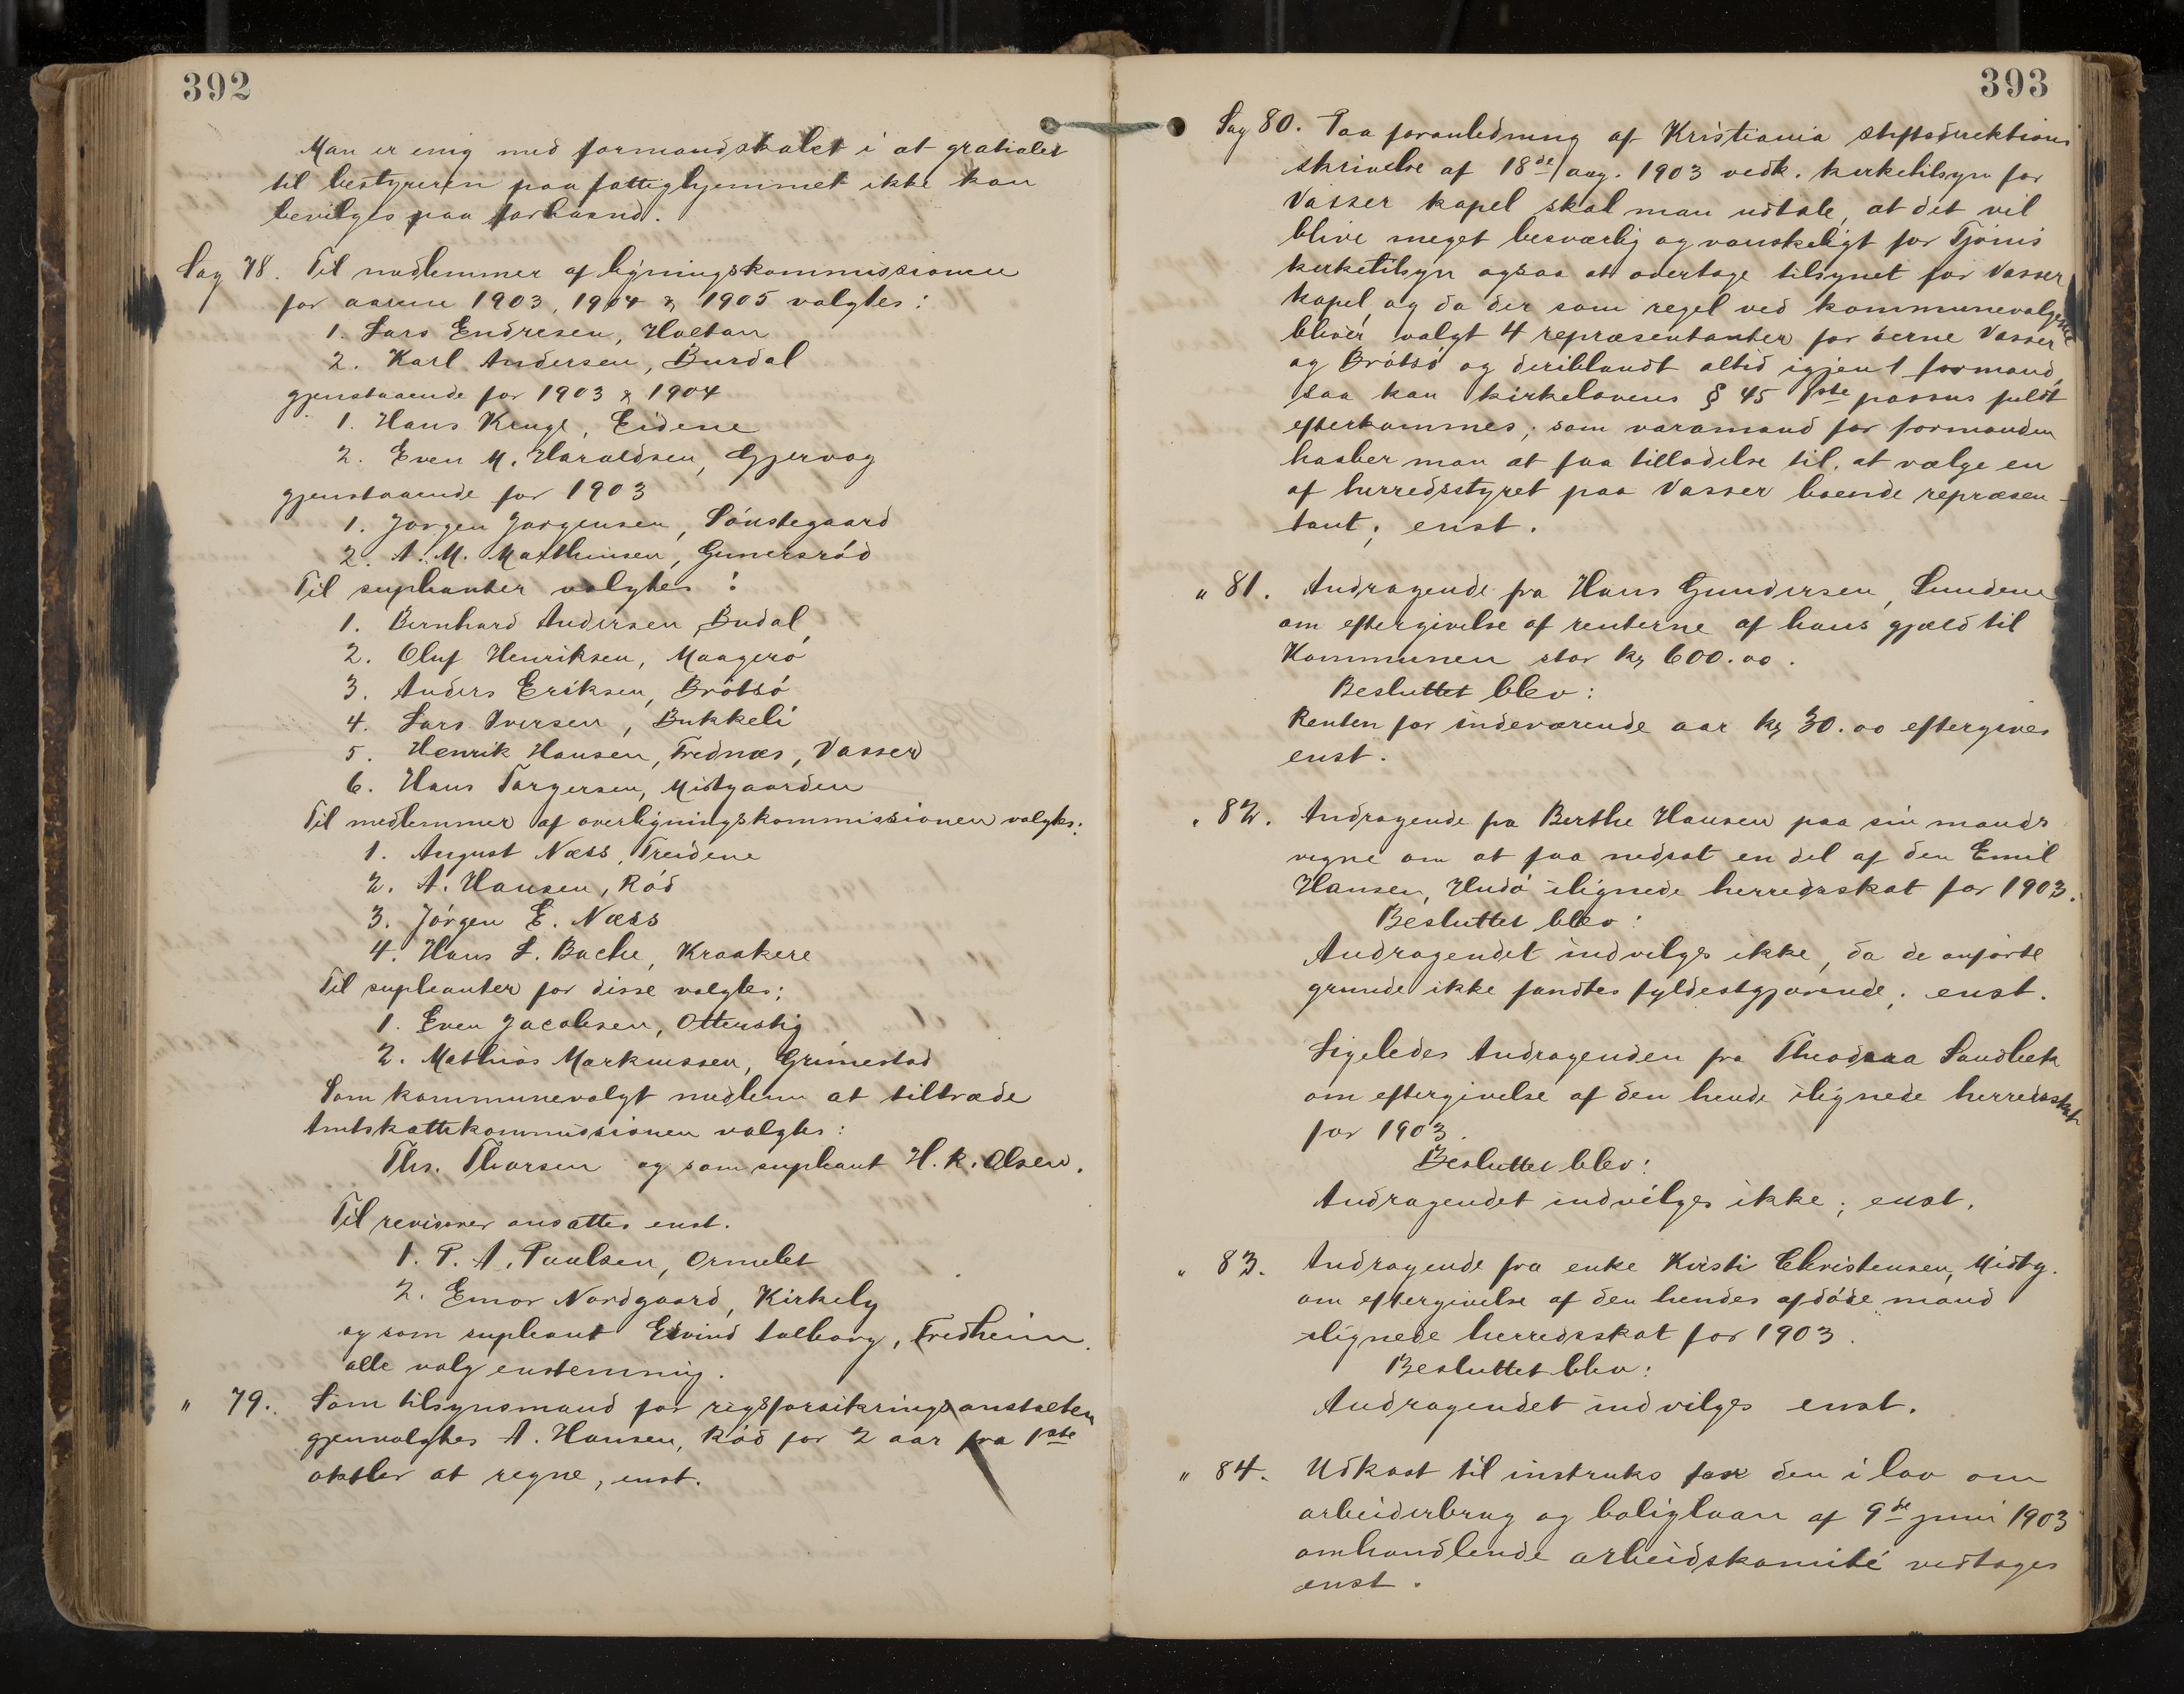 392
Man er enig med formandskabet i at gratialet
til bestyreren paa fattighjemmet ikke kan
bevilges paa forhaand.
Sag 78. Til medlemmer af ligningskommissionen
for aarene 1903, 1904 & 1905 valgtes:
1. Lars Endresen, Holtan
2. Karl Andersen, Burdal
gjenstaaende for 1903 & 1904
1. Hans Kruge, Eidene
2. Even M. Haraldsen, Gjervog
gjenstaaende for 1903
1. Jørgen Jørgensen, Sønstegaard
2. A. M. Mathiesen, Gunersrød
Til supleanter valgtes:
1. Bernhard Andersen, Budal,
2. Oluf Henriksen, Maagerø
3. Anders Eriksen, Brøtsø
4. Lars Iversen, Bukkeli
5. Henrik Hansen, Frednæs, Vasser
6. Hans Torgersen, Midtgaarden
Til medlemmer af overligningskommissionen valgtes:
1. August Næss, Treidene
2. A. Hansen, Rød
3. Jørgen E. Næss
4. Hans L. Bache, Kraakere
Til supleanter for disse valgtes:
1. Even Jacobsen, Otterstig
2. Mathias Markussen, Grimestad
Som kommunevalgt medlem at tiltræde
Amtskattekommissionen valgtes:
Ths. Thorsen og som supleant H. K. Olsen.
Til revisorer ansattes enst.
1. P. A. Paulsen, Ormelet
2. Emor Nordgaard, Kirkely
og som supleant Eivind Solberg, Fredheim.
alle valg enstemmig.
" 79. Som tilsynsmand for rigsforsikringsanstalten
gjenvalgtes A. Hansen, Rød for 2 aar fra 1ste
oktbr at regne, enst.
393
Sag 80. Paa foranledning af Kristiania stiftsdirektions
skrivelse af 18de/aug. 1903 vedk. kirketilsyn for
Vasser kapel skal man udtale, at det vil
blive meget besværlig og vanskeligt for Tjømø
kirketilsyn ogsaa at overtage tilsynet for Vasser
kapel, og da der som regel ved kommunevalgene
bliver valgt 4 repræsentanter for øerne Vasser
og Brøtsø og deriblandt altid igjen 1 formand,
saa kan kirkelovens § 45 1ste passus fuldt
efterkommes; som varamand for formanden
haaber man at faa tilladelse til at vælge en
af herredsstyret paa Vasser boende repræsen-
tant; enst.
" 81. Andragende fra Hans Gundersen, Sundene
om eftergivelse af renterne af hans gjæld til
Kommunen stor kr 600.00.
Besluttet blev:
Renten for indeværende aar kr 30.00 eftergives
enst.
" 82. Andragende fra Berthe Hansen paa sin mands
vegne om at faa nedsat en del af den Emil
Hansen, Hudø ilignede herredsskat for 1903.
Besluttet blev:
Andragendet indvilges ikke, da de anførte
grunde ikke fandtes fyldestgjørende; enst.
Ligeledes Andragenden fra Theodora Sandbek
om eftergivelse af den hende ilignede herredsskat
for 1903.
Besluttet blev:
Andragendet indvilges ikke; enst.
" 83. Andragende fra enke Kirsti Christensen, Midtg.
om eftergivelse af den hendes afdøde mand
ilignede herredsskat for 1903.
Besluttet blev:
Andragendet indvilges enst.
" 84. Udkast til instruks for den i lov om
arbeiderbrug og boliglaan af 9de juni 1903
omhandlende arbeidskomité vedtages
enst.